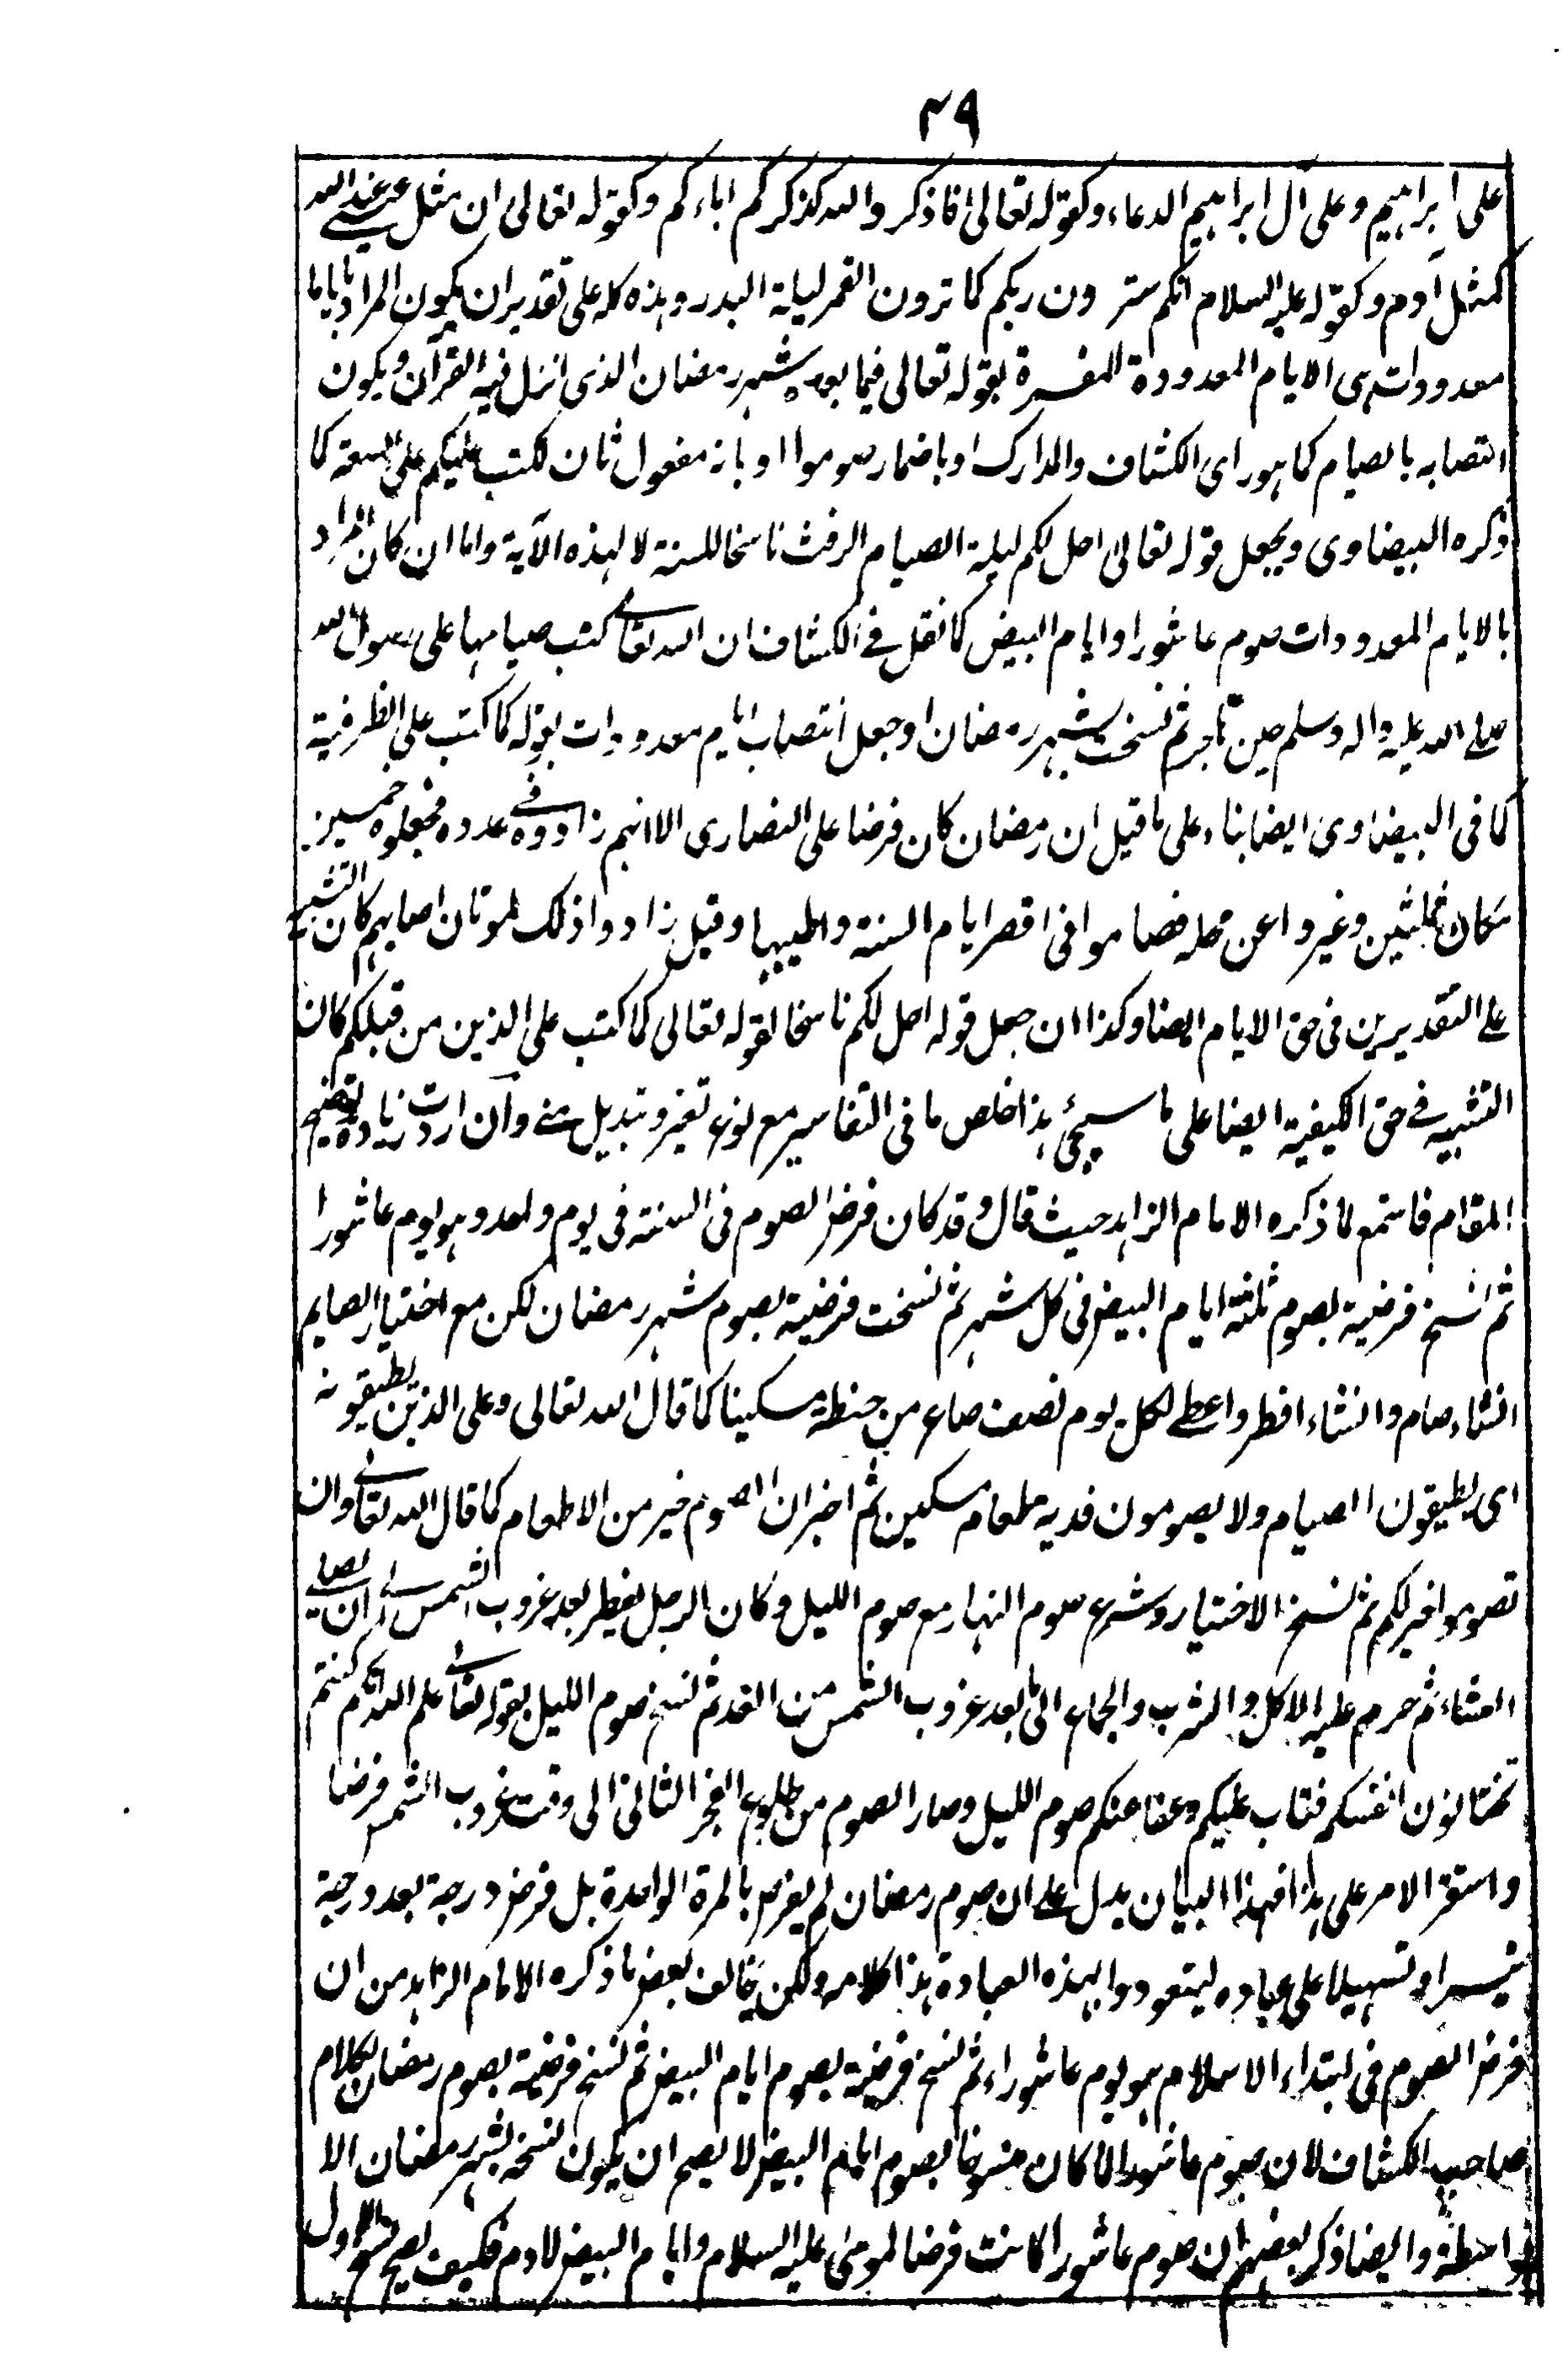 ٤٩
على ابراهيم وعلى آل ابراهيم الدعاء وكقوله تعالى فاذكروا الله كذكركم اباءكم وكقوله تعالى ان مثل عيسى عند الله
كمثل آدم وكقوله عليه السلام انكم سترون ربكم كما ترون القمر ليلة البدر وهذه كله على تقدير ان يكون المراد باياما
معدودات هى الايام المعدودة المفسرة بقوله تعالى فيما بعده شهر رمضان الذى انزل فيه القرآن ويكون
انتصابه بالصيام كما هو راى الكشاف والمدارك او باضمار صوموا او بانه مفعول ثان لكتب عليكم على السعة كما
ذكره البيضاوى ويجعل قوله تعالى احل لكم ليلة الصيام الرفث ناسخا للسنة لا لهذه الآية واما ان كان المراد
بالايام المعدودات صوم عاشورا وايام البيض كما نقل فى الكشاف ان الله تعالى كتب صيامها على رسول الله
صلى الله عليه واله وسلم حين هاجر ثم نسخت بشهر رمضان او جعل انتصاب ايام معدودات بقوله كما كتب على الظرفية
كما فى البيضاوى ايضا بناء على ما قيل ان رمضان كان فرضا على النصارى الا انهم زادوه فى عدده فجعلوه خمسين
مكان ثلثين وغيروا عن محله فصاموا فى اقصر ايام السنة واطيبها وقيل زادوا ذلك لموتان اصابهم كان التشبيه
على التقديرين فى حق الايام ايضا وكذا ان جعل قوله احل لكم ناسخا لقوله تعالى كما كتب على الذين من قبلكم كان
التشبيه فى حق الكيفية ايضا على ما سيجئ هذا خلص ما فى التفاسير مع نوع تغير وتبديل منى وان اردت زيادة توضيح
المقام فاستمع لما ذكره الامام الزاهد حيث قال وقد كان فرض الصوم فى السنة فى يوم واحد وهو يوم عاشورا
ثم نسخ فرضية بصوم ثلثة ايام البيض فى كل شهر ثم نسخت فرضية بصوم شهر رمضان لكن مع اختيار الصايم
انشاء صام وانشاء افطر واعطى لكل يوم نصف صاع من حنطة مسكينا كما قال الله تعالى وعلى الذين يطيقونه
اى يطيقون الصيام ولا يصومون فدية طعام مسكين ثم اخبر ان الصوم خير من الاطعام كما قال الله تعالى وان
تصوموا خير لكم ثم نسخ الاختيار وشرع صوم النهار مع صوم الليل وكان الرجل يفطر بعد غروب الشمس الى ان يصلى
العشاء ثم حرم عليه الاكل والشرب والجماع الى ما بعد غروب الشمس من الغد ثم نسخ صوم الليل بقوله تعالى علم الله انكم كنتم
تختانون انفسكم فتاب عليكم وعفا عنكم صوم الليل وصار الصوم من طلوع الفجر الثانى الى وقت غروب الشمس فرضا
واستقر الامر على هذا فهذا البيان يدل على ان صوم رمضان لم يفرض بالمرة الواحدة بل فرض درجة بعد درجة
تيسيرا وتسهيلا على عباده ليتعودوا بهذه العبادة هذا كلامه ولكن يخالف بعض ما ذكره الامام الزاهد من ان
فرض الصوم فى ابتداء الاسلام هو يوم عاشوراء ثم نسخ فرضية بصوم ايام البيض ثم نسخ فرضية بصوم رمضان لكلام
صاحب الكشاف لان صوم عاشورا لما كان منسوخا بصوم ايام البيض لا يصح ان يكون نسخه بشهر رمضان الا
بواسطة وايضا ذكر بعضهم ان صوم عاشورا كانت فرضا لموسى عليه السلام وايام البيض لادم فكيف يصح نسخ الاول